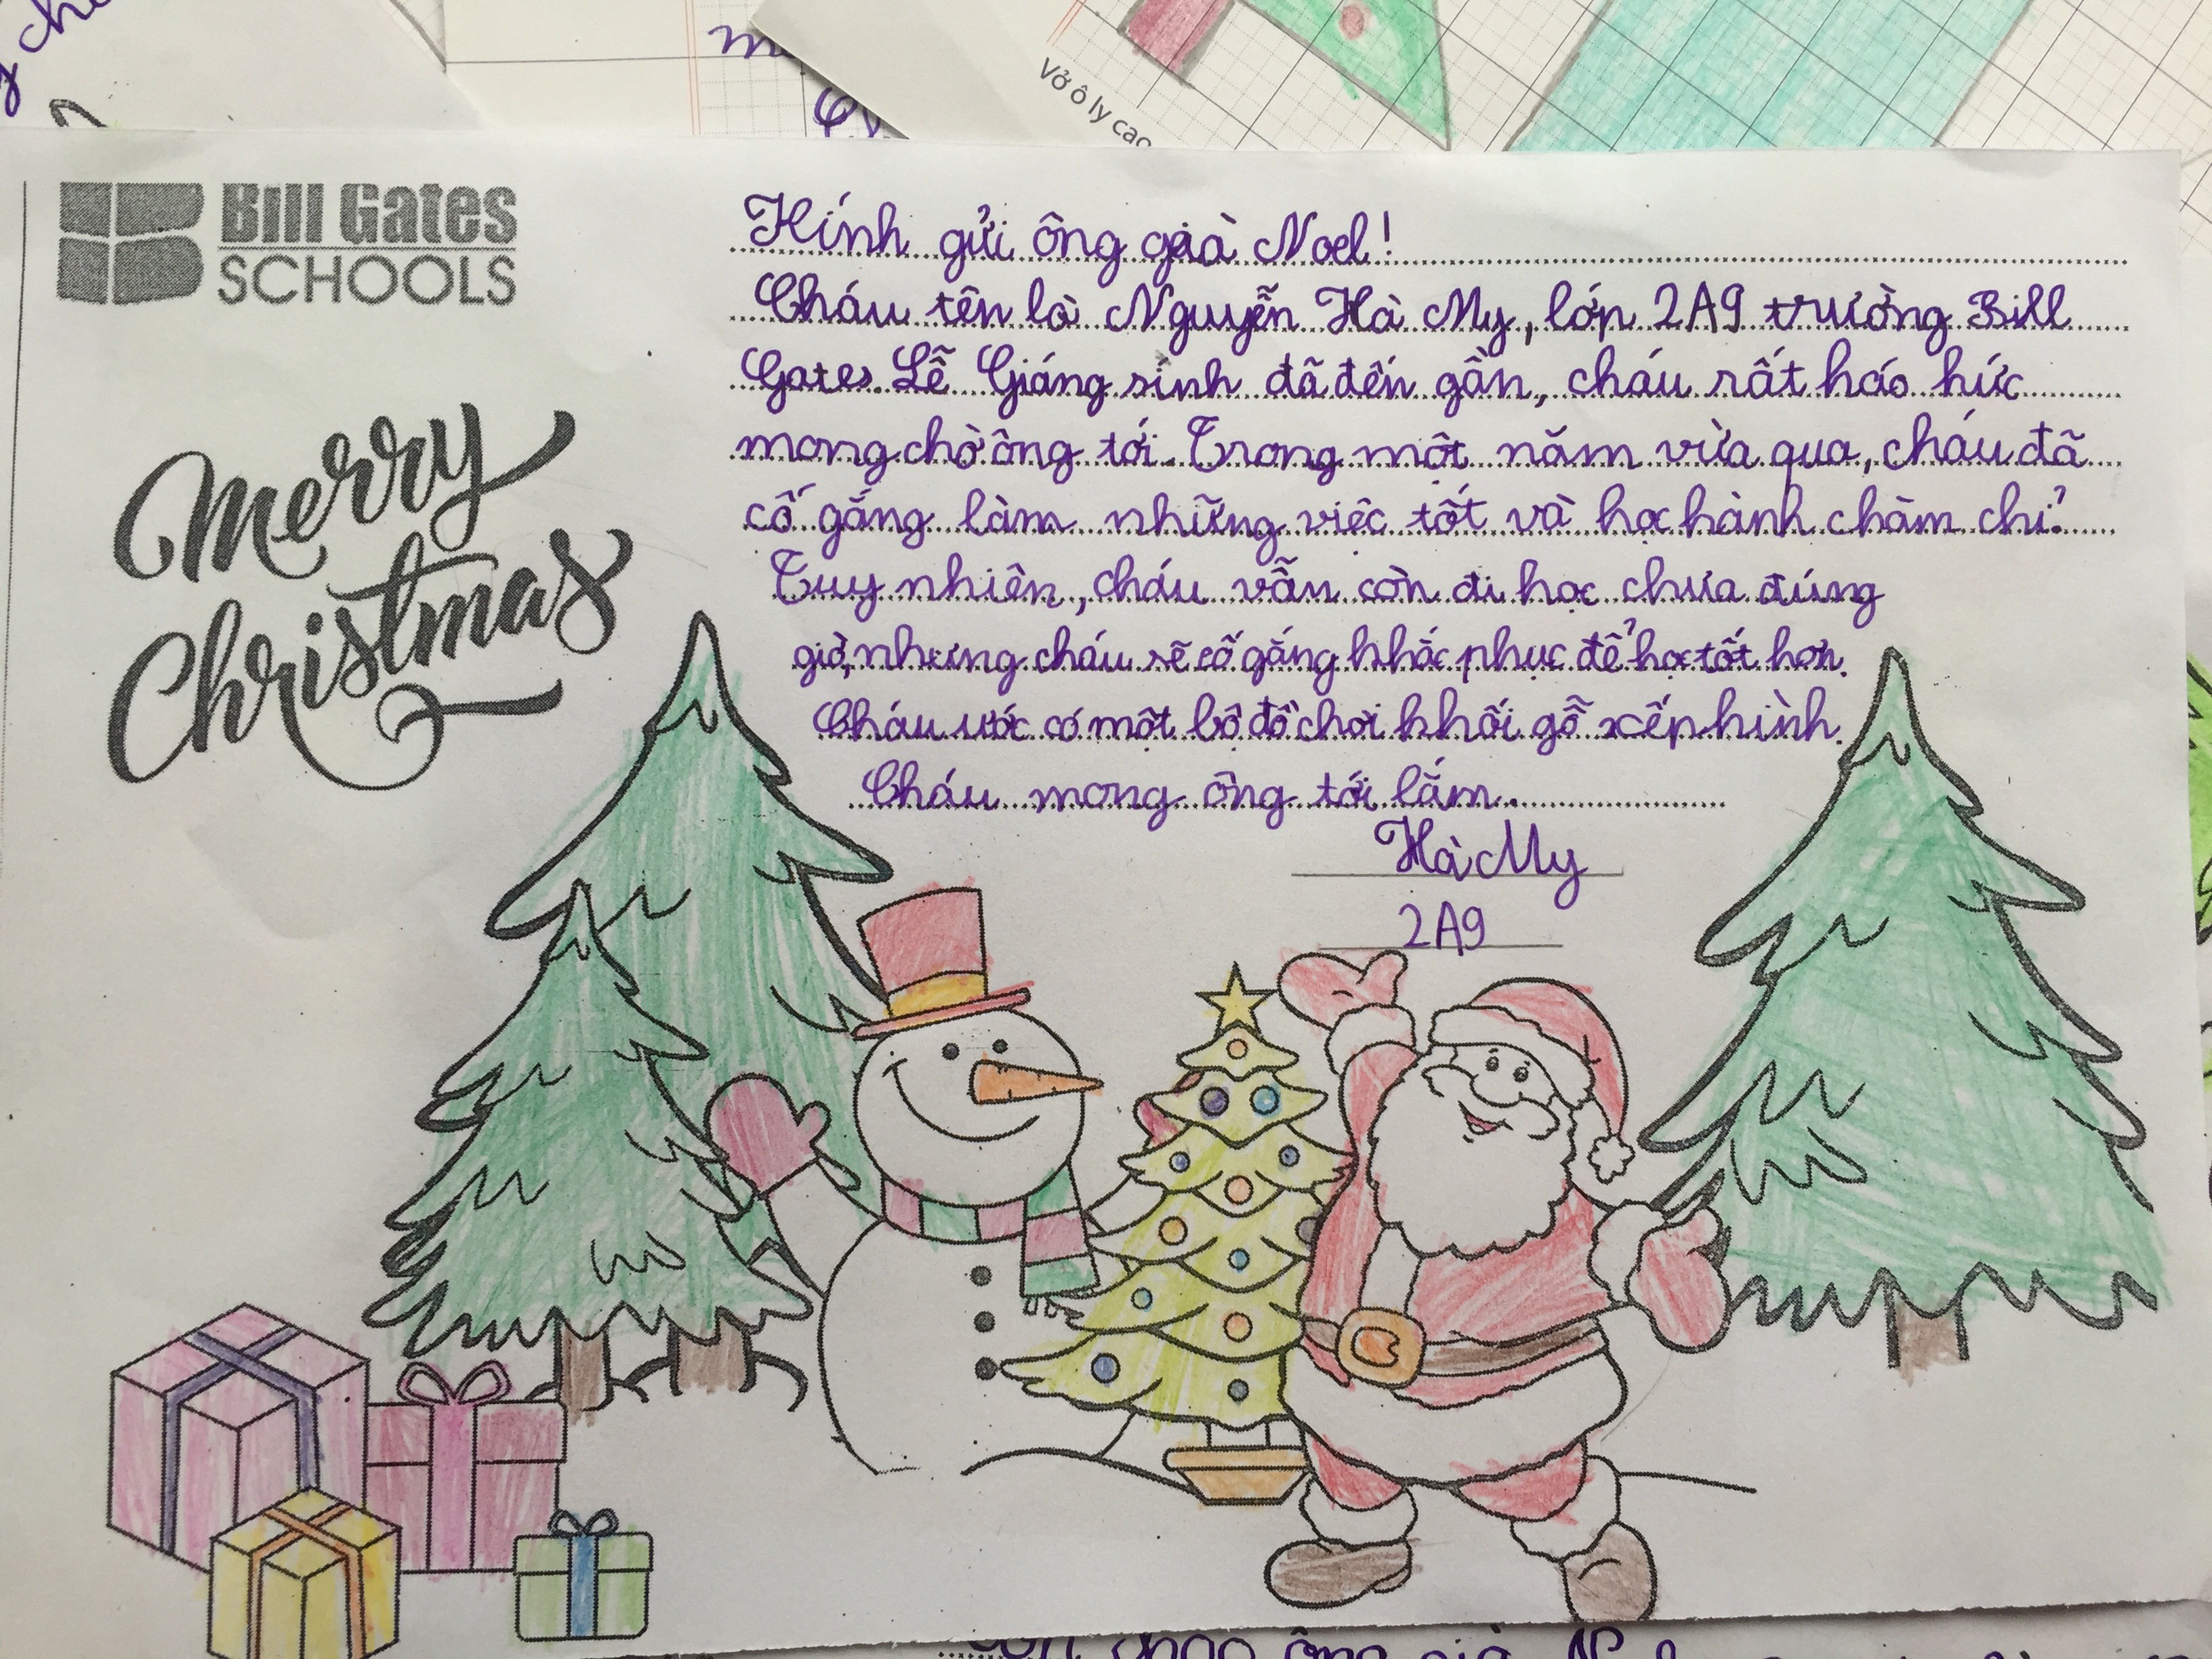 Vở ô ly cao
Bill Gates
SCHOOLS
Merry
Christmas
Kính gửi ông già Noel!
Cháu tên là Nguyễn Hà My, lớp 2A9 trường Bill
Gates. Lễ Giáng sinh đã đến gần, cháu rất háo hức
mong chờ ông tới. Trong một năm vừa qua, cháu đã
cố gắng làm những việc tốt và học hành chăm chỉ.
Tuy nhiên, cháu vẫn còn đi học chưa đúng
giờ, nhưng cháu sẽ cố gắng khắc phục để học tốt hơn.
Cháu ước có một bộ đồ chơi khối gỗ xếp hình.
Cháu mong ông tới lắm.
Hà My
2A9